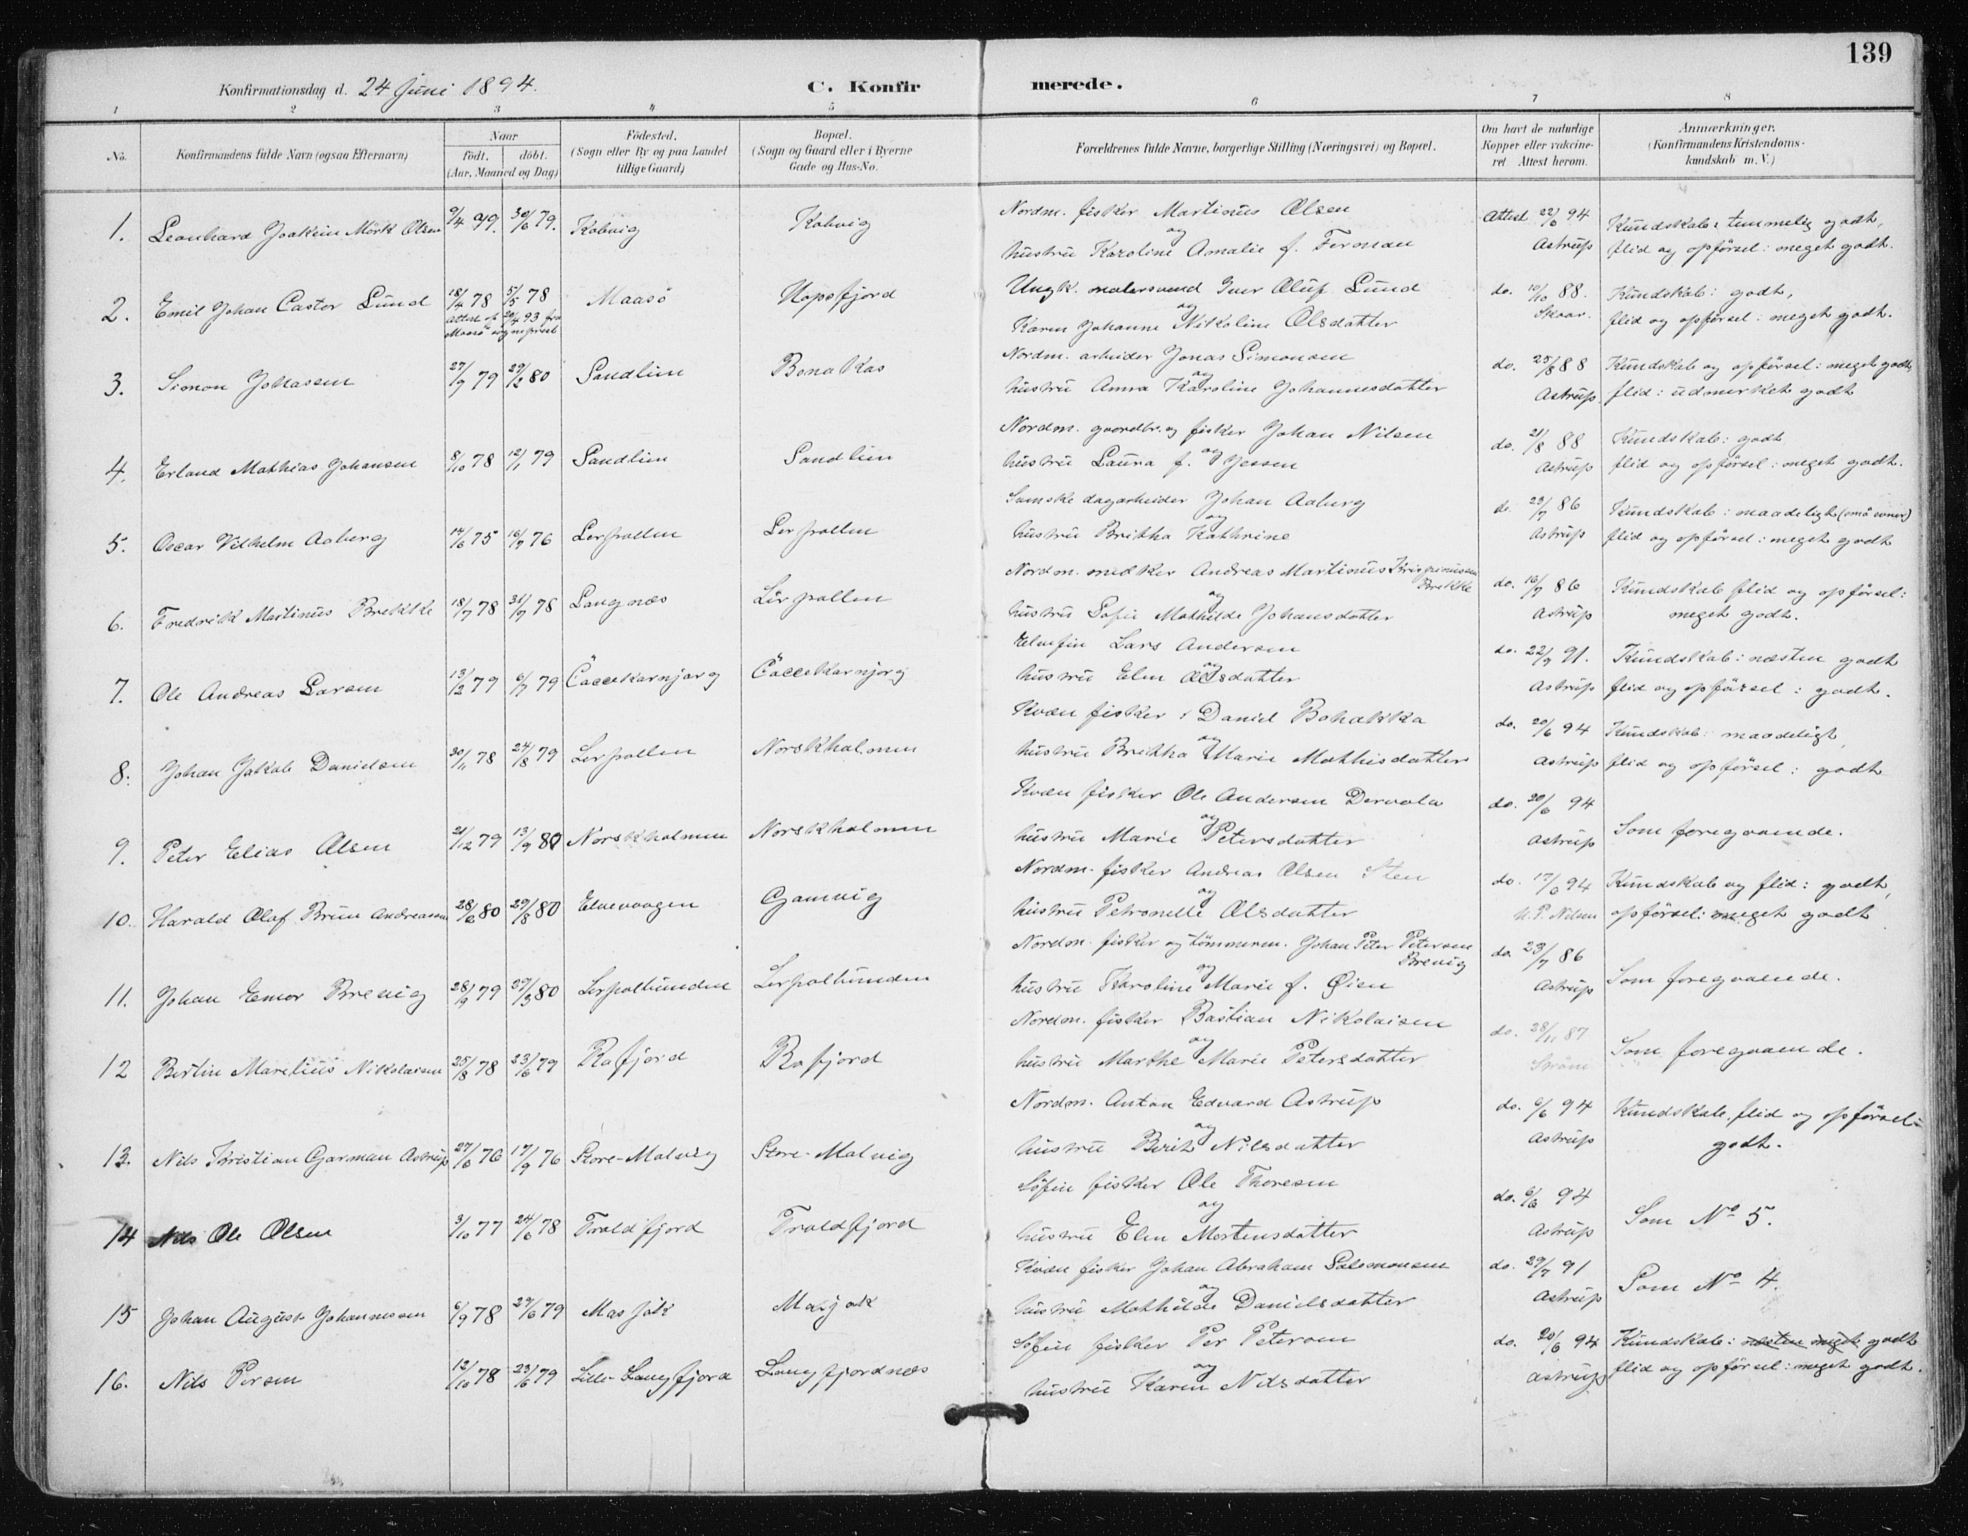 139
Konfirmationsdag d. 24 juni 1894. C. Konfirmerede.
1 2 3 4 5 6 7 8
No. Konfirmandens fulde Navn (ogsaa Efternavn) Naar født. døbt. (Aar, Maaned og Dag) Fødested. (Sogn eller By og paa Landet tillige Gaard) Bopæl. (Sogn og Gaard eller i Byerne Gade og Hus-No. Forældrenes fulde Navne, borgerlige Stilling (Næringsvei) og Bopæl. Om havt de naturlige Kopper eller vaccineret Attest herom. Anmærkninger. (Konfirmandens Kristendomskundskab m. V.)
1. Leonhard Joakim Mörk Olsen 9/4 79. 30/6 79. Kobvig Kobvig Nordm. fisker Martinus Olsen Attest 22/6 94 Kundskab: temmelig godt,
og hustru Karoline Amalie f. Forman Astrup flid og opförsel: meget godt.
2. Emil Johan Castor Lund 18/4 78 5/5 78 Maasö Hopsfjord Ungk. malersvend Iver Oluf Lund do. 10/10 88. Kundskab: godt,
Attest af 20/4 93 fra Maasö sogneprest og Karen Johanne Nikoline Olsdatter Skaar. flid og opförsel: meget godt.
3. Simon Johnsen 27/9 79 29/2 80 Sandlien Bonakas Nordm. arbeider Jonas Simonsen do. 25/8 88 Kundskab og opförsel: meget godt,
og hustru Anna Karoline Johannesdatter Astrup. flid: udmerket godt
4. Erland Mathias Johansen 8/10 78 12/1 79 Sandlien Sandlien Nordm. gaardbr. og fisker Johan Nilsen do. 21/8 88 Kundskab: godt
og hustru Laura f. Jessen Astrup flid og opförsel: meget godt.
5. Oscar Vilhelm Aaberg 14/6 75 16/7 76 Lerpollen Lerpollen Svenske dagarbeider Johan Aaberg do. 23/7 86 Kundskab: maadeligt (små evner)
og hustru Britha Kathrine Astrup flid og opförsel: meget godt
6. Fredrik Martinus Brekke 18/7 78 31/7 78 Langnæs Lerpollen Nordm. Andreas Martinus Brekke do. 16/7 86 Kundskab flid og opförsel:
og hustru Sofie Mathilde Johansdatter Astrup meget godt.
7. Ole Andreas Larsen 13/2 79 6/7 79 Čaccekarnjarg Čaccekarnjarg Elvefin Lars Andersen do. 22/7 91. Kundskab: næsten godt
og hustru Elen Olsdatter Astrup flid og opförsel: godt.
8. Johan Jakob Danielsen 30/11 78 24/8 79 Lerpollen Norskholmen Kvæn fisker Daniel do. 20/6 94 Kundskab: maadeligt,
og hustru Britha Marie Mathisdatter Astrup flid og opförsel: godt
9. Peter Elias Olsen 21/12 79 13/9 80 Norskholmen Norskholmen Kvæn fisker Ole Andersen do. 20/6 94 Som foregaaende.
og hustru Marie Petersdatter Astrup
10. Harald Olaf Brun Andreassen 28/6 80 29/8 80 Elvevaagen Gamvig Nordm. fisker Andreas Olsen Sten do. 17/6 94 Kundskab og flid: godt,
og hustru Petronelle Olsdatter N. P. Nilsen opförsel: meget godt
11. Johan Brevig 28/9 79 27/3 80 Lerpolbunden Lerpolbunden Nordm. fisker og tömmerm. Johan Peter Petersen Brevig do. 23/7 86 Som foregaaende.
og hustru Karoline Marie f. Øien Astrup
12 Bertin Marelius Nikolaisen 25/8 78 23/6 79 Rafjord Rafjord Nordm. fisker Bastian Nikolaisen do. 28/11 87 Som foregaaende.
og hustru Marthe Marie Petersdatter Ström
13. Nils Kristian Garman Astrup 27/6 76 17/9 76 Store-Malvig Store-Malvig Nordm. Anton Edvard Astrup do. 6/6 94 Kundskab, flid og opförsel:
og hustru Berit Nilsdatter Astrup godt.
14 Nils Ole Olsen 3/10 77 24/6 78 Troldfjord Troldfjord Söfin fisker Ole Thoresen do. 6/6 94 Som No 5.
og hustru Elen Mortensdatter Astrup
15 Johan August Johannessen 6/9 78 29/6 79 Masjok Masjok Kvæn fisker Johan Abraham Salomonsen do. 29/7 91 Som No 4.
og hustru Mathilde Danielsdatter Astrup
16. Nils Persen 12/10 78 23/6 79 Lille-Langfjord Langfjordnæs Söfin fisker Per Petersen do. 20/6 94 Kundskab: næsten meget godt
og hustru Karen Nilsdatter Astrup flid og opförsel: meget godt.